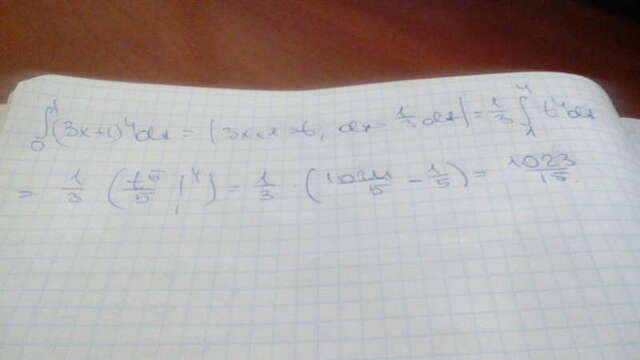 ∫₀¹(3x+1)⁴dx = |3x+1=t, dx=1/3 dt| = 1/3 ∫₁⁴ t⁴dt
= 1/3 (t⁵/5 |₁⁴) = 1/3 · (1024/5 − 1/5) = 1023/15